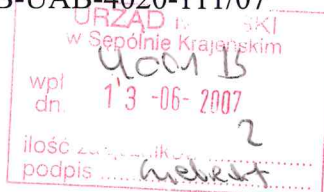 B-UAB-4020-111/07
URZĄD SKI
w Sępólnie Krajeńskim
wpł
dn. 13 -06- 2007
ilość 2
podpis